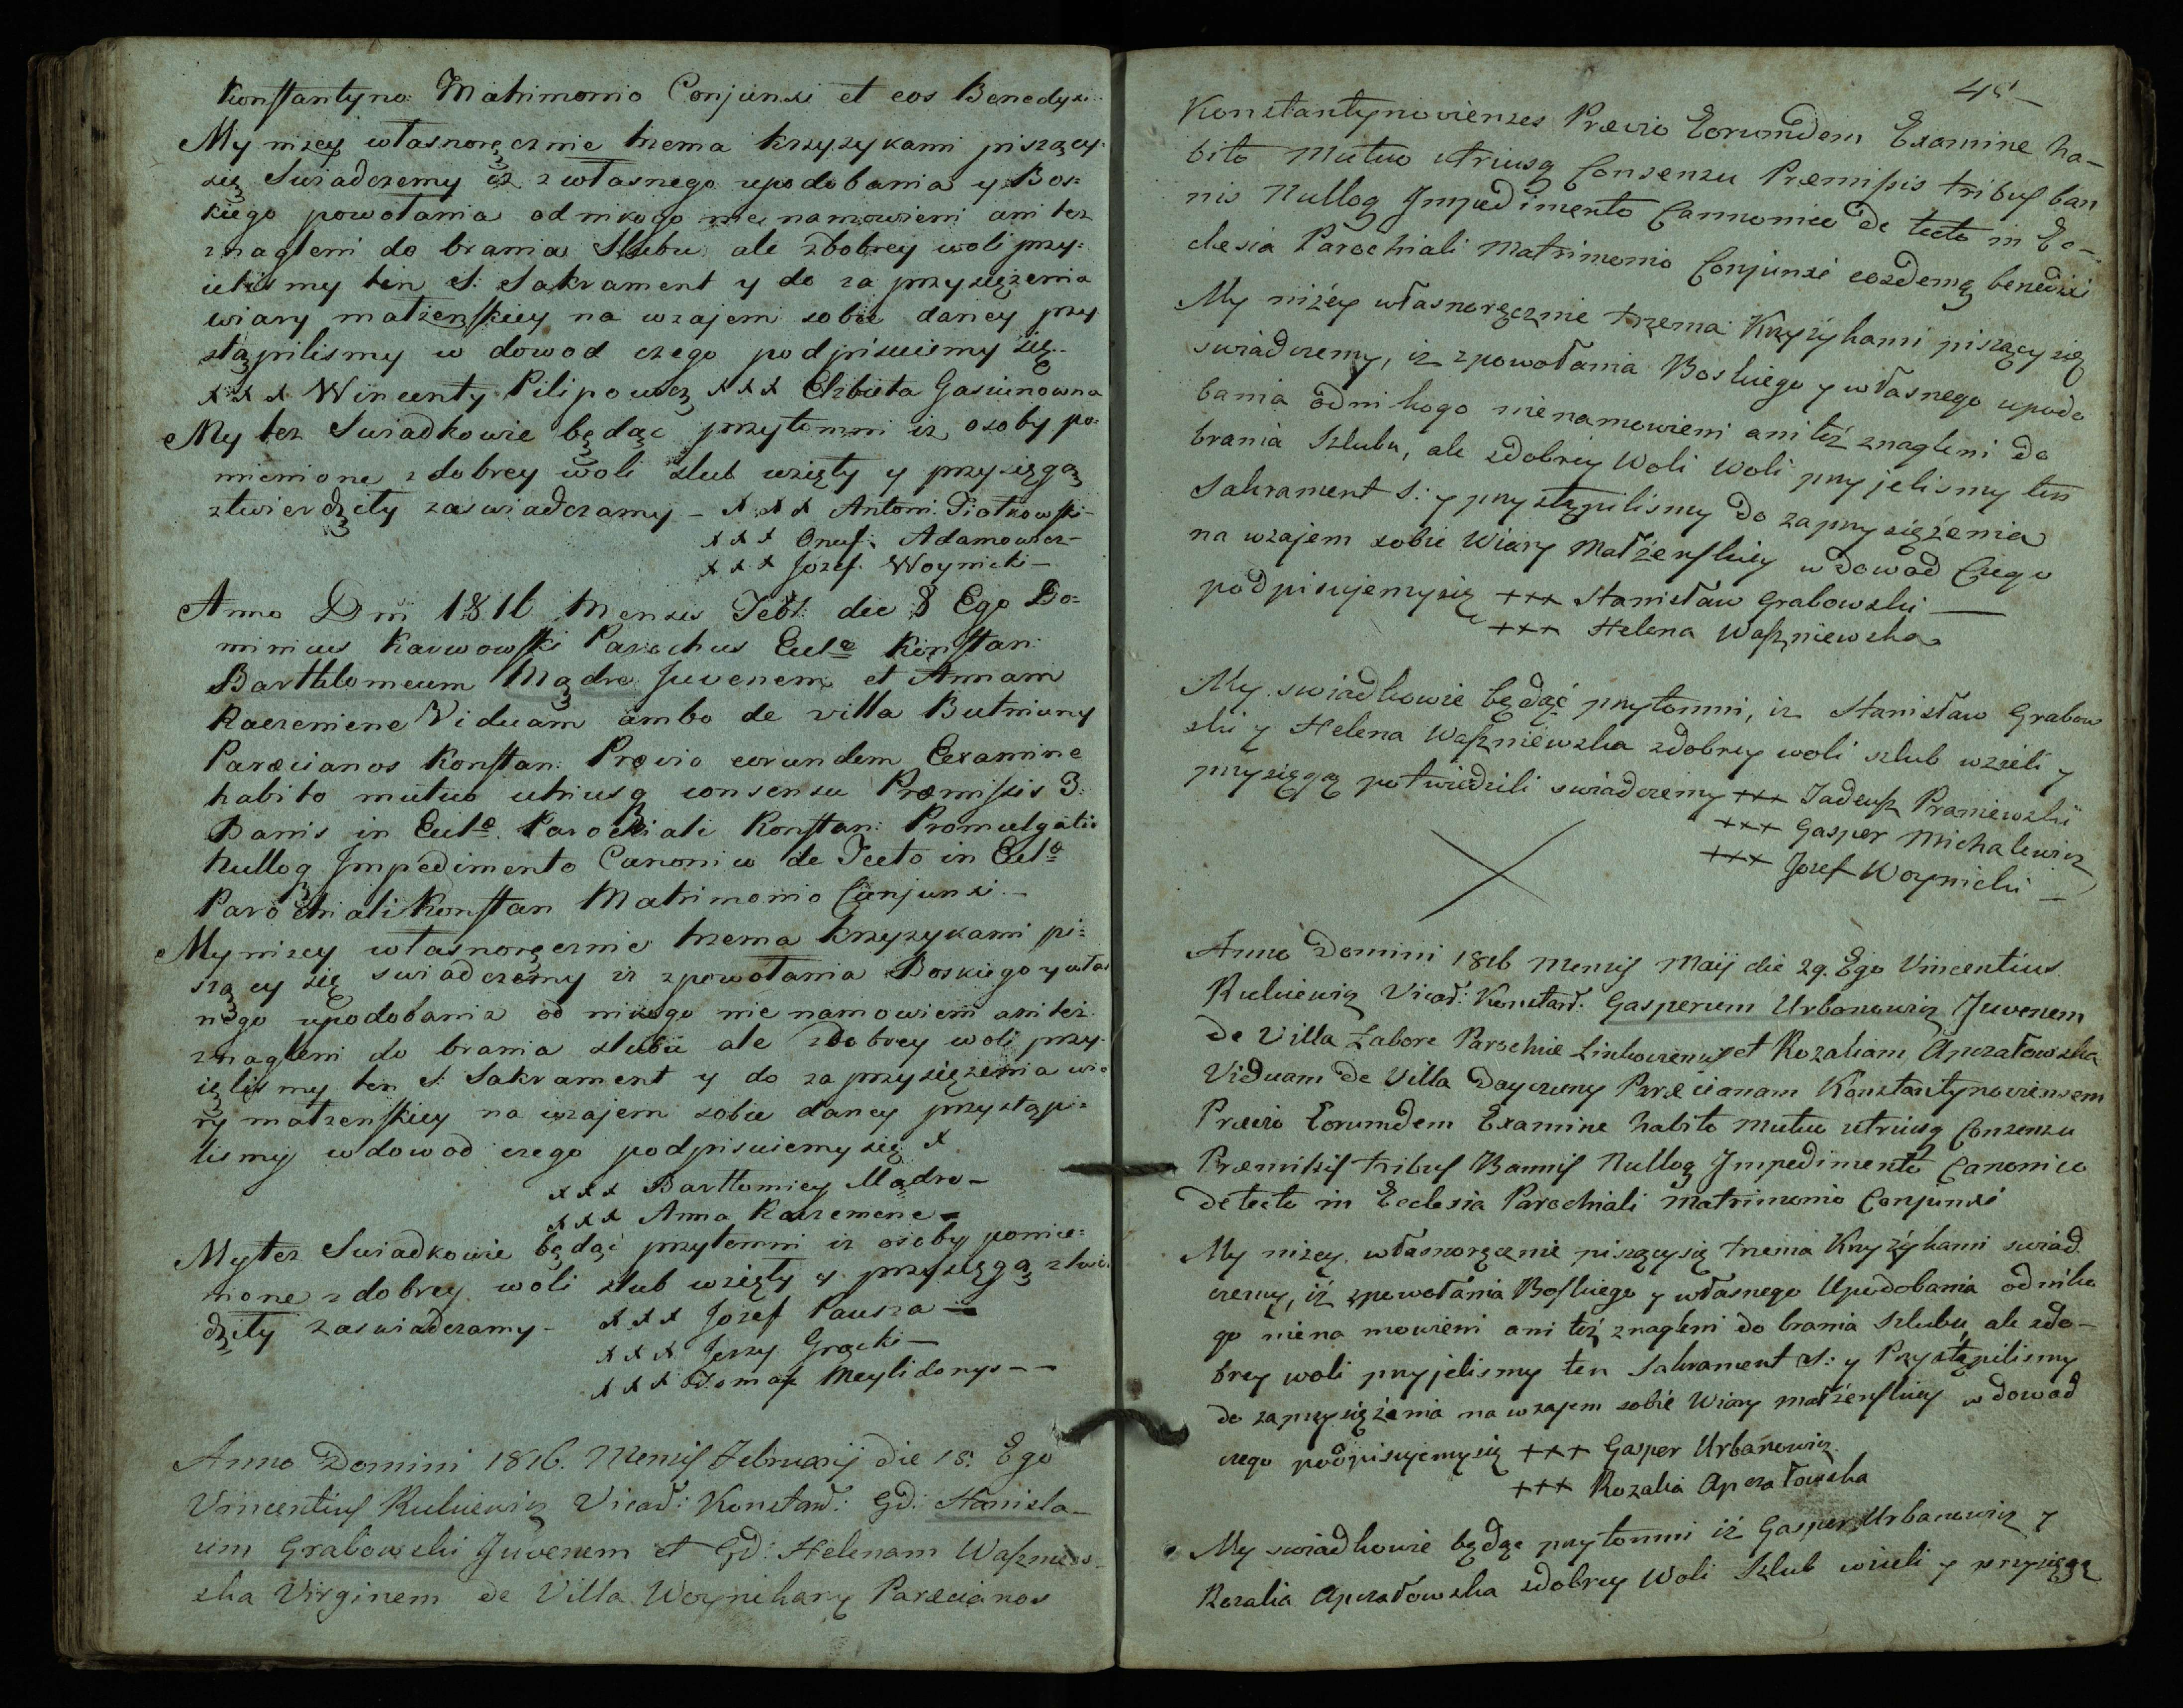 Konstantyno: Matrimonio Conjunxi et eos Benedyxi
My niżey własnoręcznie trzema krzyżykami piszący
się Swiadczemy iż z własnego upodobania y Bos=
kiego powołania od nikogo nie namowieni ani tez
znagleni do brania Slubu ale zdobrey woli przy=
ielismy ten S: Sakrament y do za przysiężenia
wiary małżenskiey na wzajem sobie daney przy
stąpilismy w dowod czego podpisuiemy się
x x x Wincenty Pilipowicz x x x Elzbieta Gasiunowna
My tez Swiadkowie będąc przytomni iz osoby po=
mienione z dobrey woli slub wzięły y przysięgą
ztwierdziły zaswiadczamy - x x x Antoni Piotkowski-
x x x Onuf: Adamowicz-
x x x Jozef Woynicki-
Anno Dni 1816 Mensis Febr: die 8 Ego Do=
minicus Karwowski Parochus Eccle Konstan:
Barthlomeum Mądre Juvenem et Annam
Kaczeniene Viduam ambo de villa Butniuny
Paroecianos Konstan: Prævio eorundem Examine
habito mutuo utriusq consensu Præmissis 3:
Banis in Eccle Parochiali Konstan: Promulgatis
Nulloq Impedimento Canonico de Tecto in Eccle
Parochiali Konstan Matrimonio Conjunxi -
My nizey własnoręcznie trzema krzyzykami pi=
szący się swiadczemy iz z powołania Boskiego y włas
nego upodobania od nikogo nie namowieni ani też
znagleni do brania slubu ale zdobrey woli przy=
ięlismy ten S: Sakrament y do za przysięzenia wia
ry małzenskiey na wzajem sobie daney przystąpi=
lismy w dowod czego podpisuiemy się x
x x x Bartłomiey Mądre-
x x x Anna Kaczeniene-
My tez Swiadkowie będąc przytomni iz osoby pomie=
nione z dobrey woli slub wzięły y przysięgą ztwier
dziły zaswiadczamy - x x x Jozef Pausza -
x x x Jerzy Grącki -
x x x Tomasz Meylidonys - -
Anno Domini 1816. Mensis Februarij die 18. Ego
Vincentius Rukiewicz Vicar: Konstan: GD: Stanisla-
um Grabowski Juvenem et GD: Helenam Waszniew-
ska Virginem de Villa Woynikany Paræcianos
45-
Konstantynovienses Prævio Eorumdem Examine ha-
bito Mutuo utriusq Consensu Præmissis tribus ban
nis Nulloq Impedimento Cannonico de tecto in Ec-
clesia Parochiali Matrimonio Conjunxi eosdemq benedixi
My niżey własnoręcznie trzema Krzyżykami piszący się
swiadczemy, iz zpowołania Boskiego y własnego upodo
bania odnikogo nienamowieni ani też znagleni do
brania Szlubu, ale zdobrey Woli Woli przyjelismy ten
Sakrament S: y przystąpilismy do zaprzysiężenia
na wzajem sobie Wiary Małżenskiey w dowod Czego
podpisujemy się +++ Stanisław Grabowski —
+++ Helena Waszniewska
My swiadkowie będąć przytomni, iz Stanisław Grabow
ski y Helena Waszniewska zdobrey woli szlub wzieli y
przysięgą potwiedzili swiadczemy +++ Tadeusz Praniewskii
+++ Gasper Michalewicz
+++ Jozef Woynicki -
Anno Domini 1816 Mensis Maij die 29. Ego Vincentius
Rukiewicz Vicar: Konstan: Gasperum Urbanowicz Juvenem
de Villa Zabore Parochiæ Linkoviensis et Rozaliam Apszałowska
Viduam de Villa Dayczuny Paræcianam Konstantynoviensem
Prævio Eorumdem Examine habito Mutuo utriusq Consensu
Præmissis tribus Bannis Nulloq Impedimento Canonico
detecto in Ecclesia Parochiali Matrimonio Conjunxi
My nizey własnoręcznie piszącysię trzema Krzyżykami swiad
czemy, iż zpowołania Boskiego y własnego Upodobania odniko
go niena mowieni ani też znagleni do brania Szlubu, ale zdo-
brey woli przyjelismy ten Sakrament S: y Przystąpilismy
do zaprzysiężenia na wzajem sobie Wiary małżenskiey w dowod
czego podpisujemy się +++ Gasper Urbanowicz
+++ Rozalia Apszałowska
My swiadkowie będąc przytomni iż Gasper Urbanowicz y
Rozalia Apszałowska zdobrey Woli Szlub wzieli y przysięgą